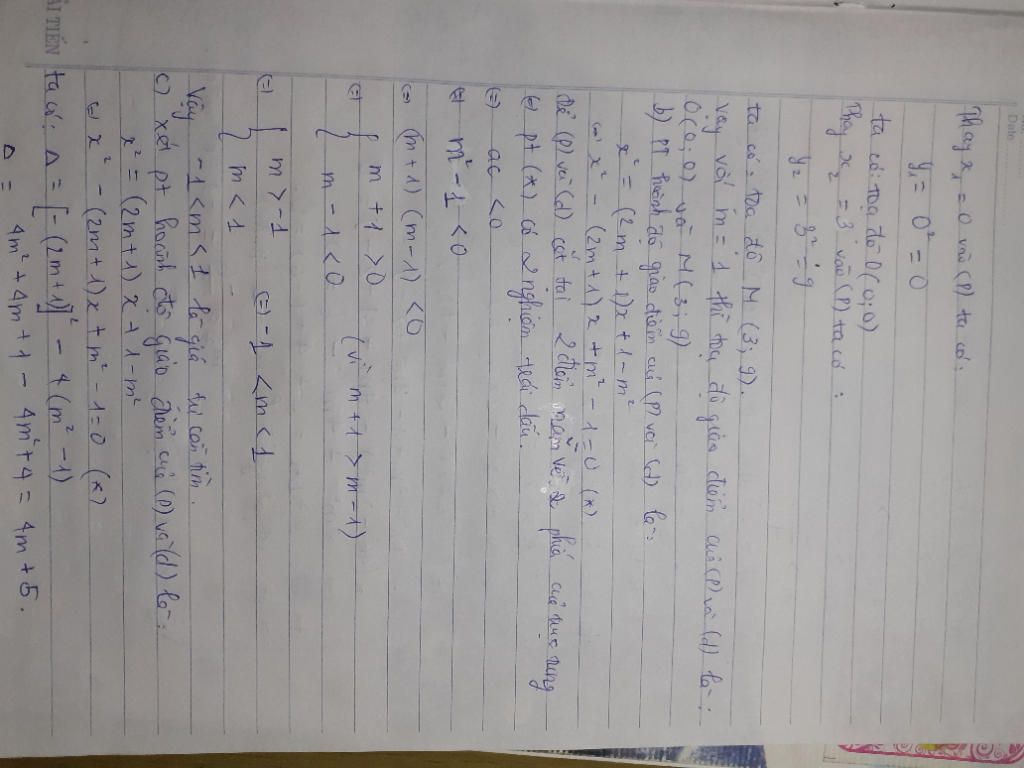 Date
Thay x₁ = 0 vào (P) ta có:
y₁ = 0² = 0
ta có: tọa độ O (0;0)
Thay x₂ = 3 vào (P) ta có :
y₂ = 3² = 9
ta có: tọa độ M (3; 9).
Vậy với m = 1 thì tọa độ giao điểm của (P) và (d) là:
O(0; 0) và M (3; 9)
b) PT hoành độ giao điểm của (P) và (d) là:
x² = (2m + 1)x + 1 - m²
⇔ x² - (2m+1)x + m² - 1 = 0 (*)
Để (P) và (d) cắt tại 2 điểm nằm về 2 phía của trục tung
⇔ pt (*) có 2 nghiệm trái dấu.
⇔ ac < 0
⇔ m² - 1 < 0
⇔ (m+1) (m-1) < 0
⇔ { m + 1 > 0
m - 1 < 0 (vì m+1 > m-1)
⇔ { m > -1
m < 1 ⇔ -1 < m < 1
Vậy -1 < m < 1 là giá trị cần tìm.
c) xét pt hoành độ giao điểm của (P) và (d) là:
x² = (2m+1) x + 1 - m²
⇔ x² - (2m+1)x + m² - 1 = 0 (*)
ta có: Δ = [-(2m+1)]² - 4 (m² - 1)
Δ = 4m² + 4m + 1 - 4m² + 4 = 4m + 5.
ẢI TIẾN